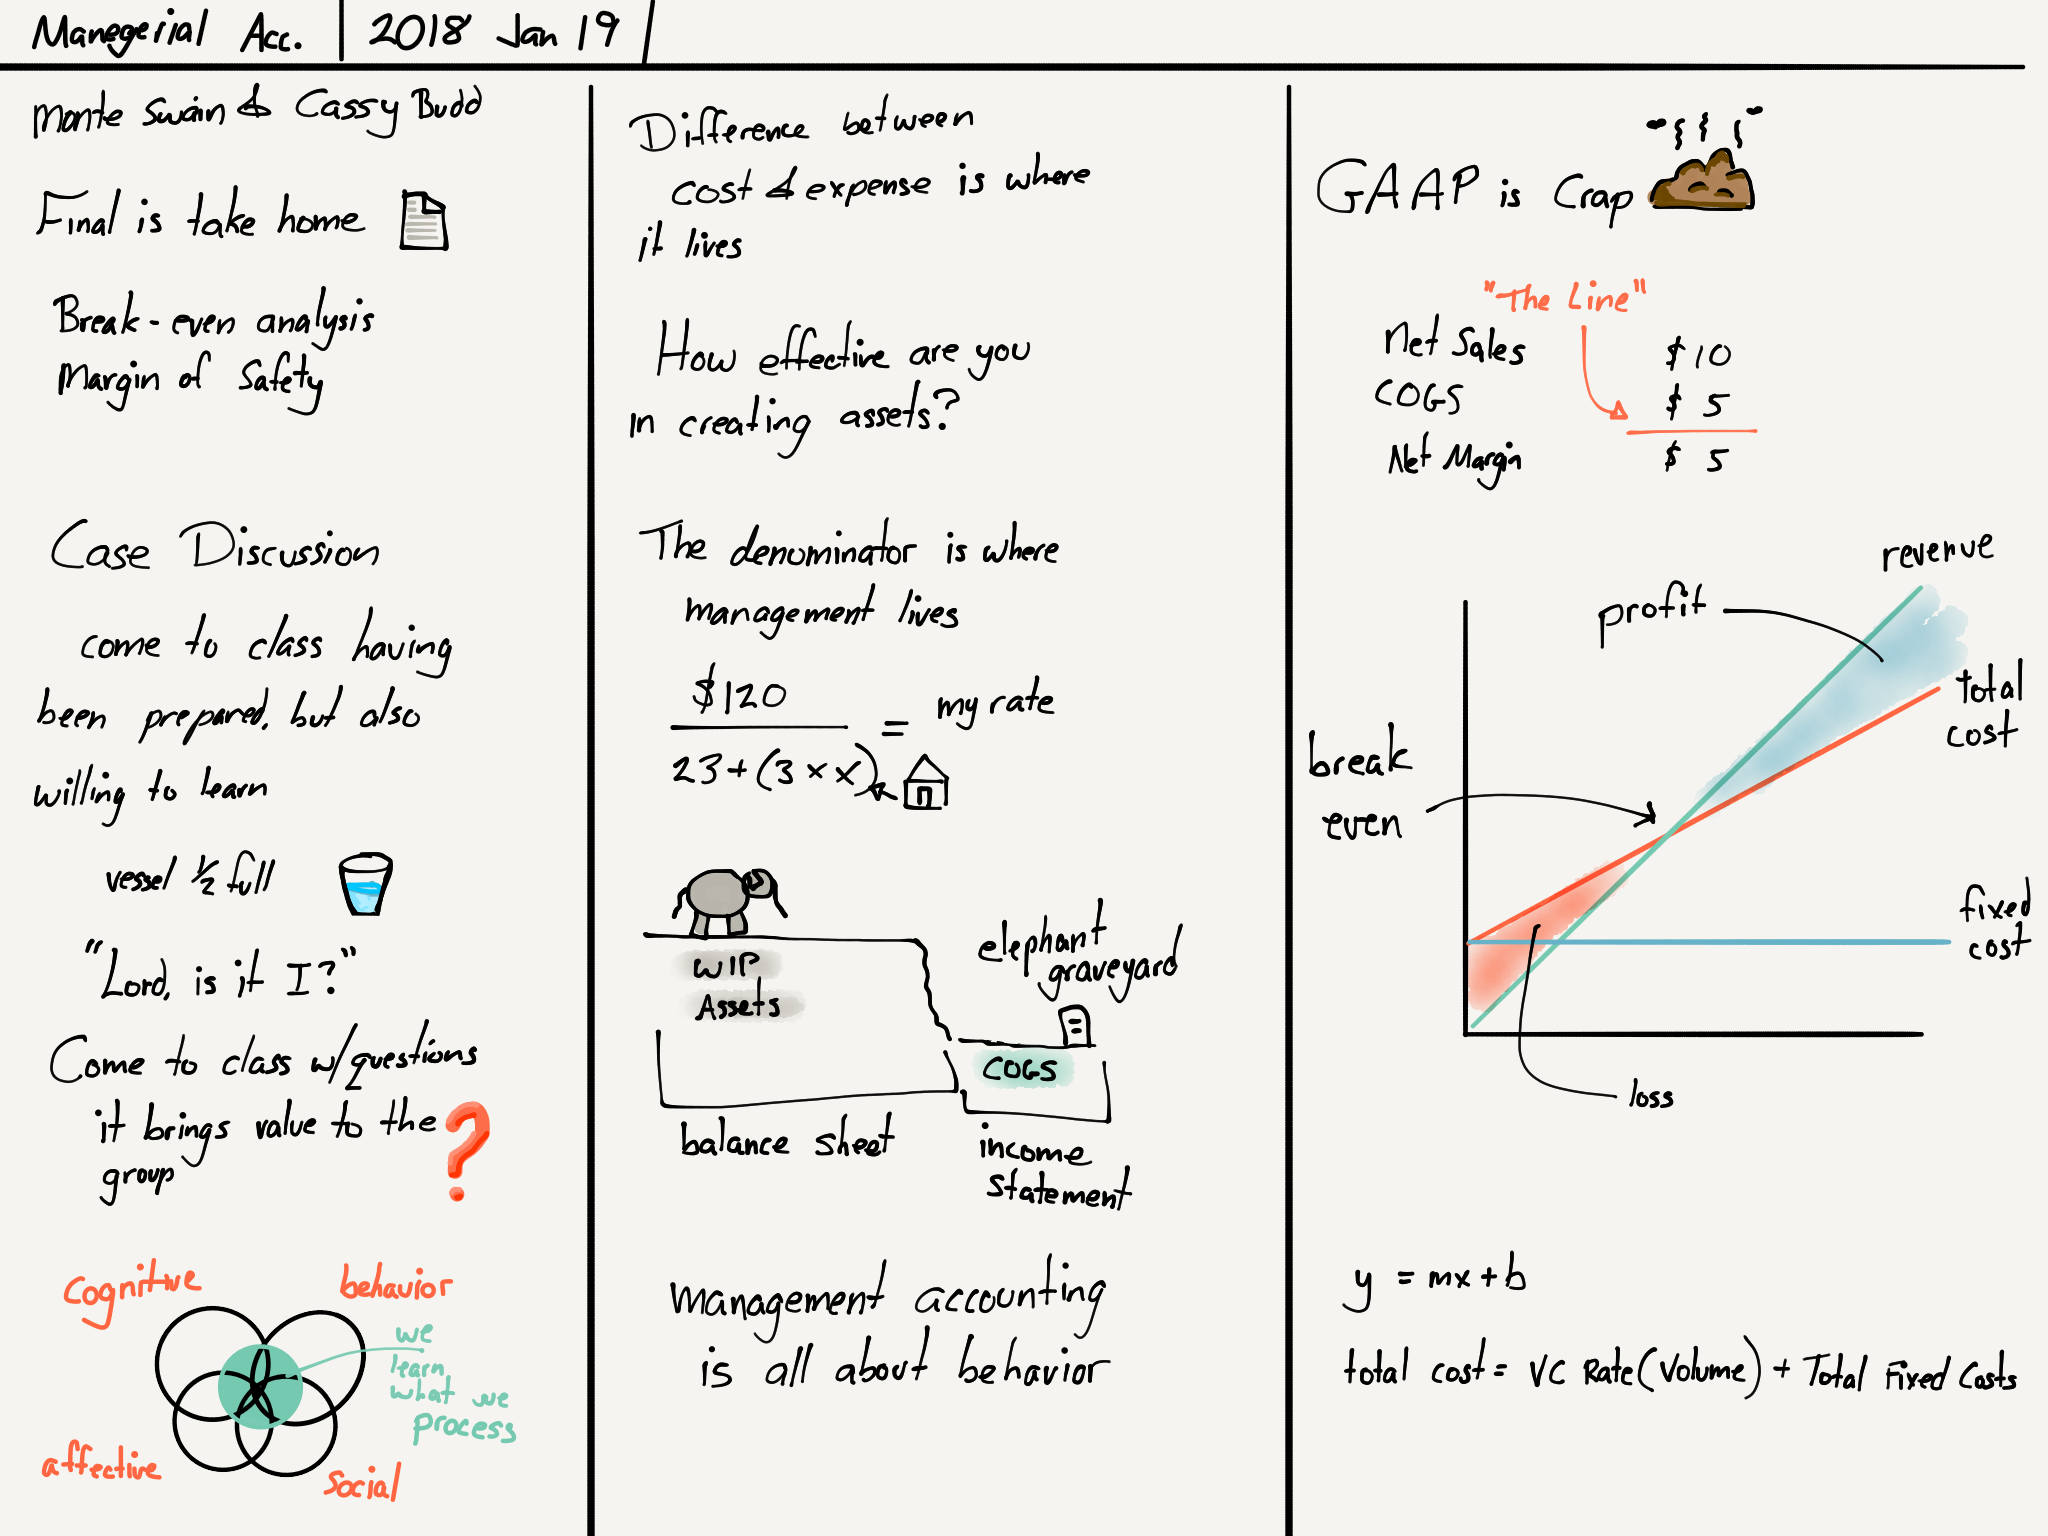 Manegerial Acc.
2018 Jan 19
Monte Swain & Cassy Budd
Final is take home
Break-even analysis
Margin of Safety
Case Discussion
come to class having
been prepared, but also
willing to learn
vessel 1/2 full
"Lord, is it I?"
Come to class w/questions
it brings value to the
group
?
cognitive
behavior
we
learn
what we
process
affective
social
Difference between
cost & expense is where
it lives
How effective are you
in creating assets?
The denominator is where
management lives
$120
= my rate
23+(3 × x)
WIP
Assets
elephant
graveyard
COGS
balance sheet
income
statement
management accounting
is all about behavior
GAAP is Crap
"The Line"
Net Sales $10
COGS $ 5
Net Margin $ 5
revenue
profit
total
cost
break
even
fixed
cost
loss
y = mx+b
total cost = VC Rate(Volume) + Total Fixed Costs